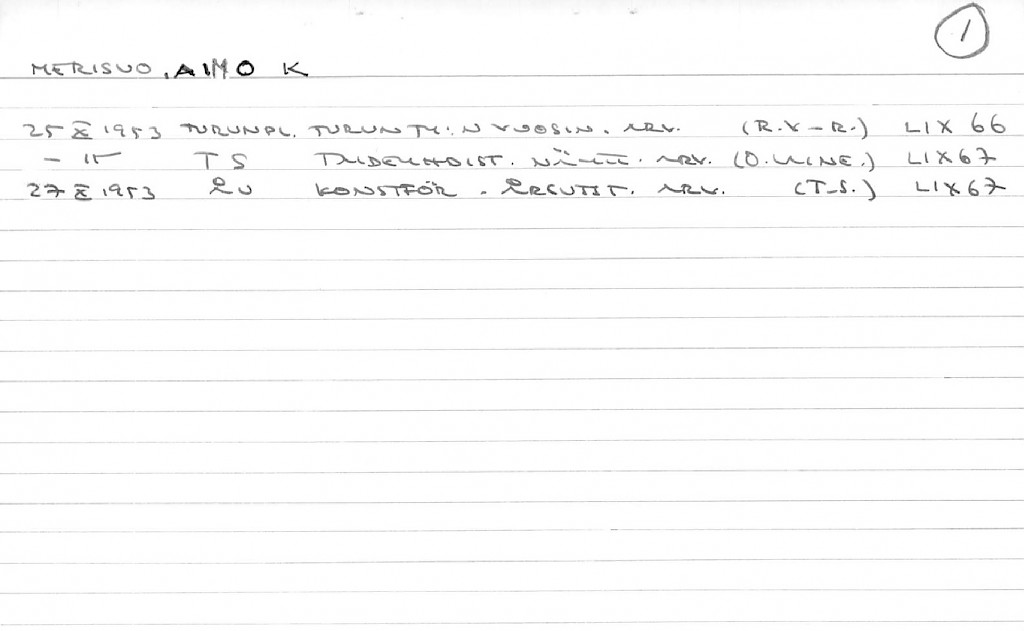 1
MERISUO, AIMO K
25 X 1953 TURUNPL. TURUN TH:N VUOSIN. ARV. (R.V-R.) LIX 66
- " - TS TAIDEYHDIST. NÄYTT. ARV. (O. LAINE.) LIX 67
27 X 1953 ÅU KONSTFÖR. ÅRSUTST. ARV. (T-S.) LIX 67